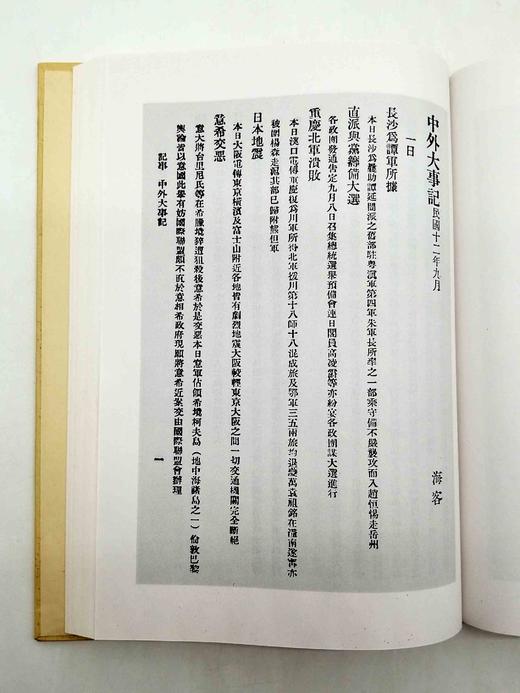 中外大事記 民國十二年九月
海客
一日
長沙爲譚軍所據
本日長沙爲擁助譚延闓派之舊部駐粵滇軍第四軍朱軍長所率之一部乘守備不嚴襲攻而入趙恒惕走岳州
直派與黨經備大選
各政團發通告定九月八日召集總統選舉預備會連日閣員高凌霨等亦紛宴各政團謀大選進行
重慶北軍潰敗
本日漢口電傳重慶復爲川軍所得北軍援川第十八師十八混成旅及鄂軍三五兩旅均退夔萬袁祖銘在潼南遂寧亦
被困楊森走瀘其部已歸附熊但軍
日本地震
本日大阪電傳東京橫濱及富士山附近各地皆有劇烈地震大阪較輕東京大阪之間一切交通機關完全斷絕
意希交惡
意大將台里尼氏等在希臘境猝遭狙殺後意希於是交惡本日意軍佔領希境柯夫島（地中海諸島之一）倫敦巴黎
輿論皆以意國此舉有妨國際聯盟頗不直於意相希政府現願將意希近案交由國際聯盟會辦理
記事 中外大事記
一